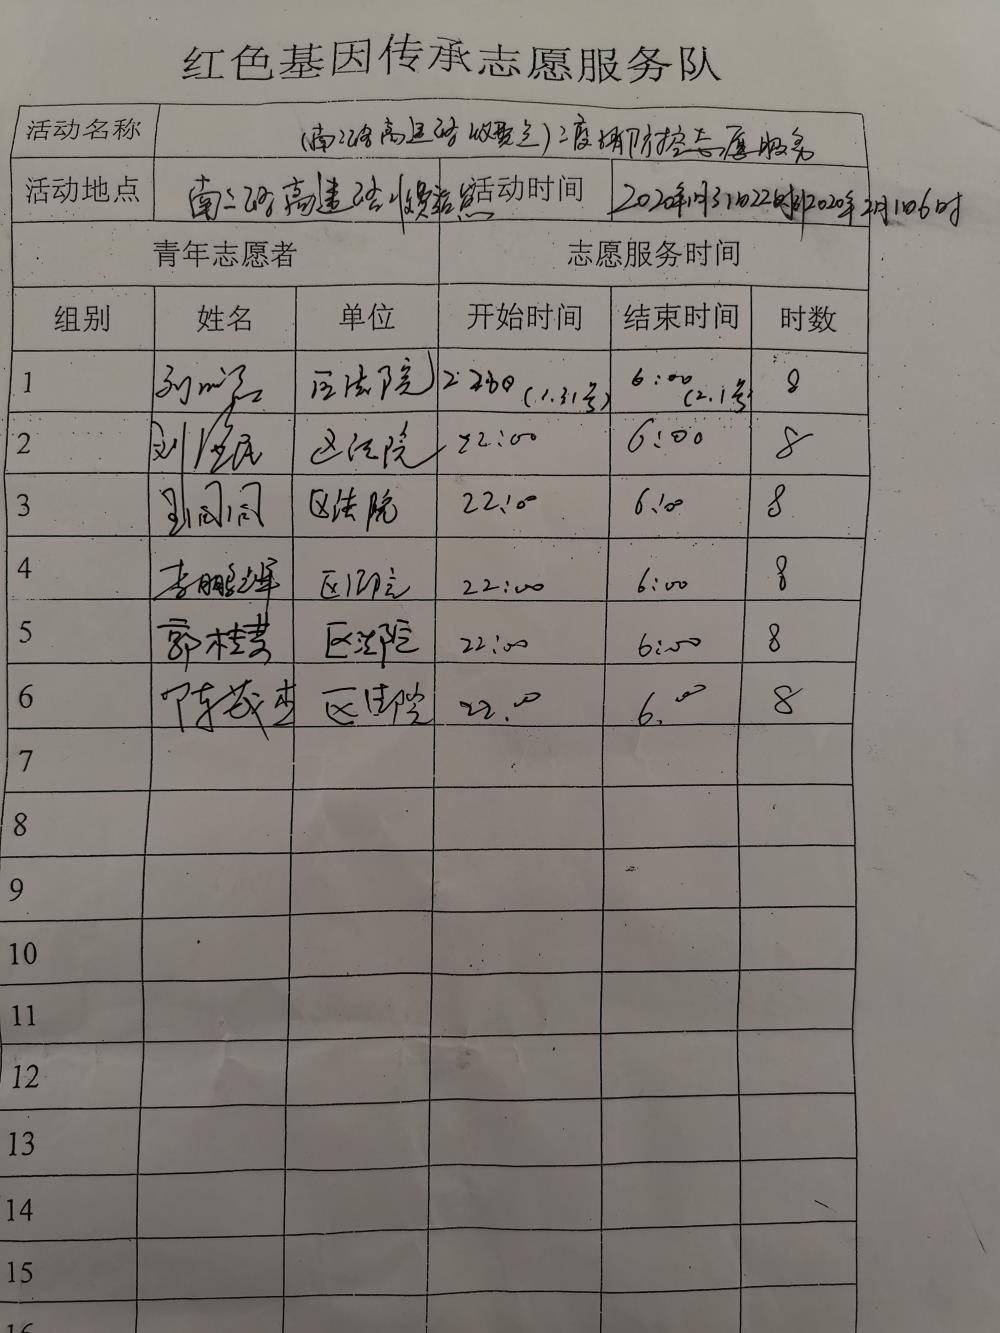 红色基因传承志愿服务队
活动名称 (南二路高速路收费站)疫情防控志愿服务
活动地点 南二路高速路收费站点 活动时间 2020年1月31日22时到2020年2月1日6时
青年志愿者 志愿服务时间
组别 姓名 单位 开始时间 结束时间 时数
1 区法院 (1.31号) 6:00 (2.1号 8
2 区法院 22:00 6:00 8
3 区法院 22:00 6:00 8
4 李鹏辉 区法院 22:00 6:00 8
5 郭桂英 区法院 22:00 6:00 8
6 陈茂杰 区法院 22:00 6:00 8
7
8
9
10
11
12
13
14
15
16